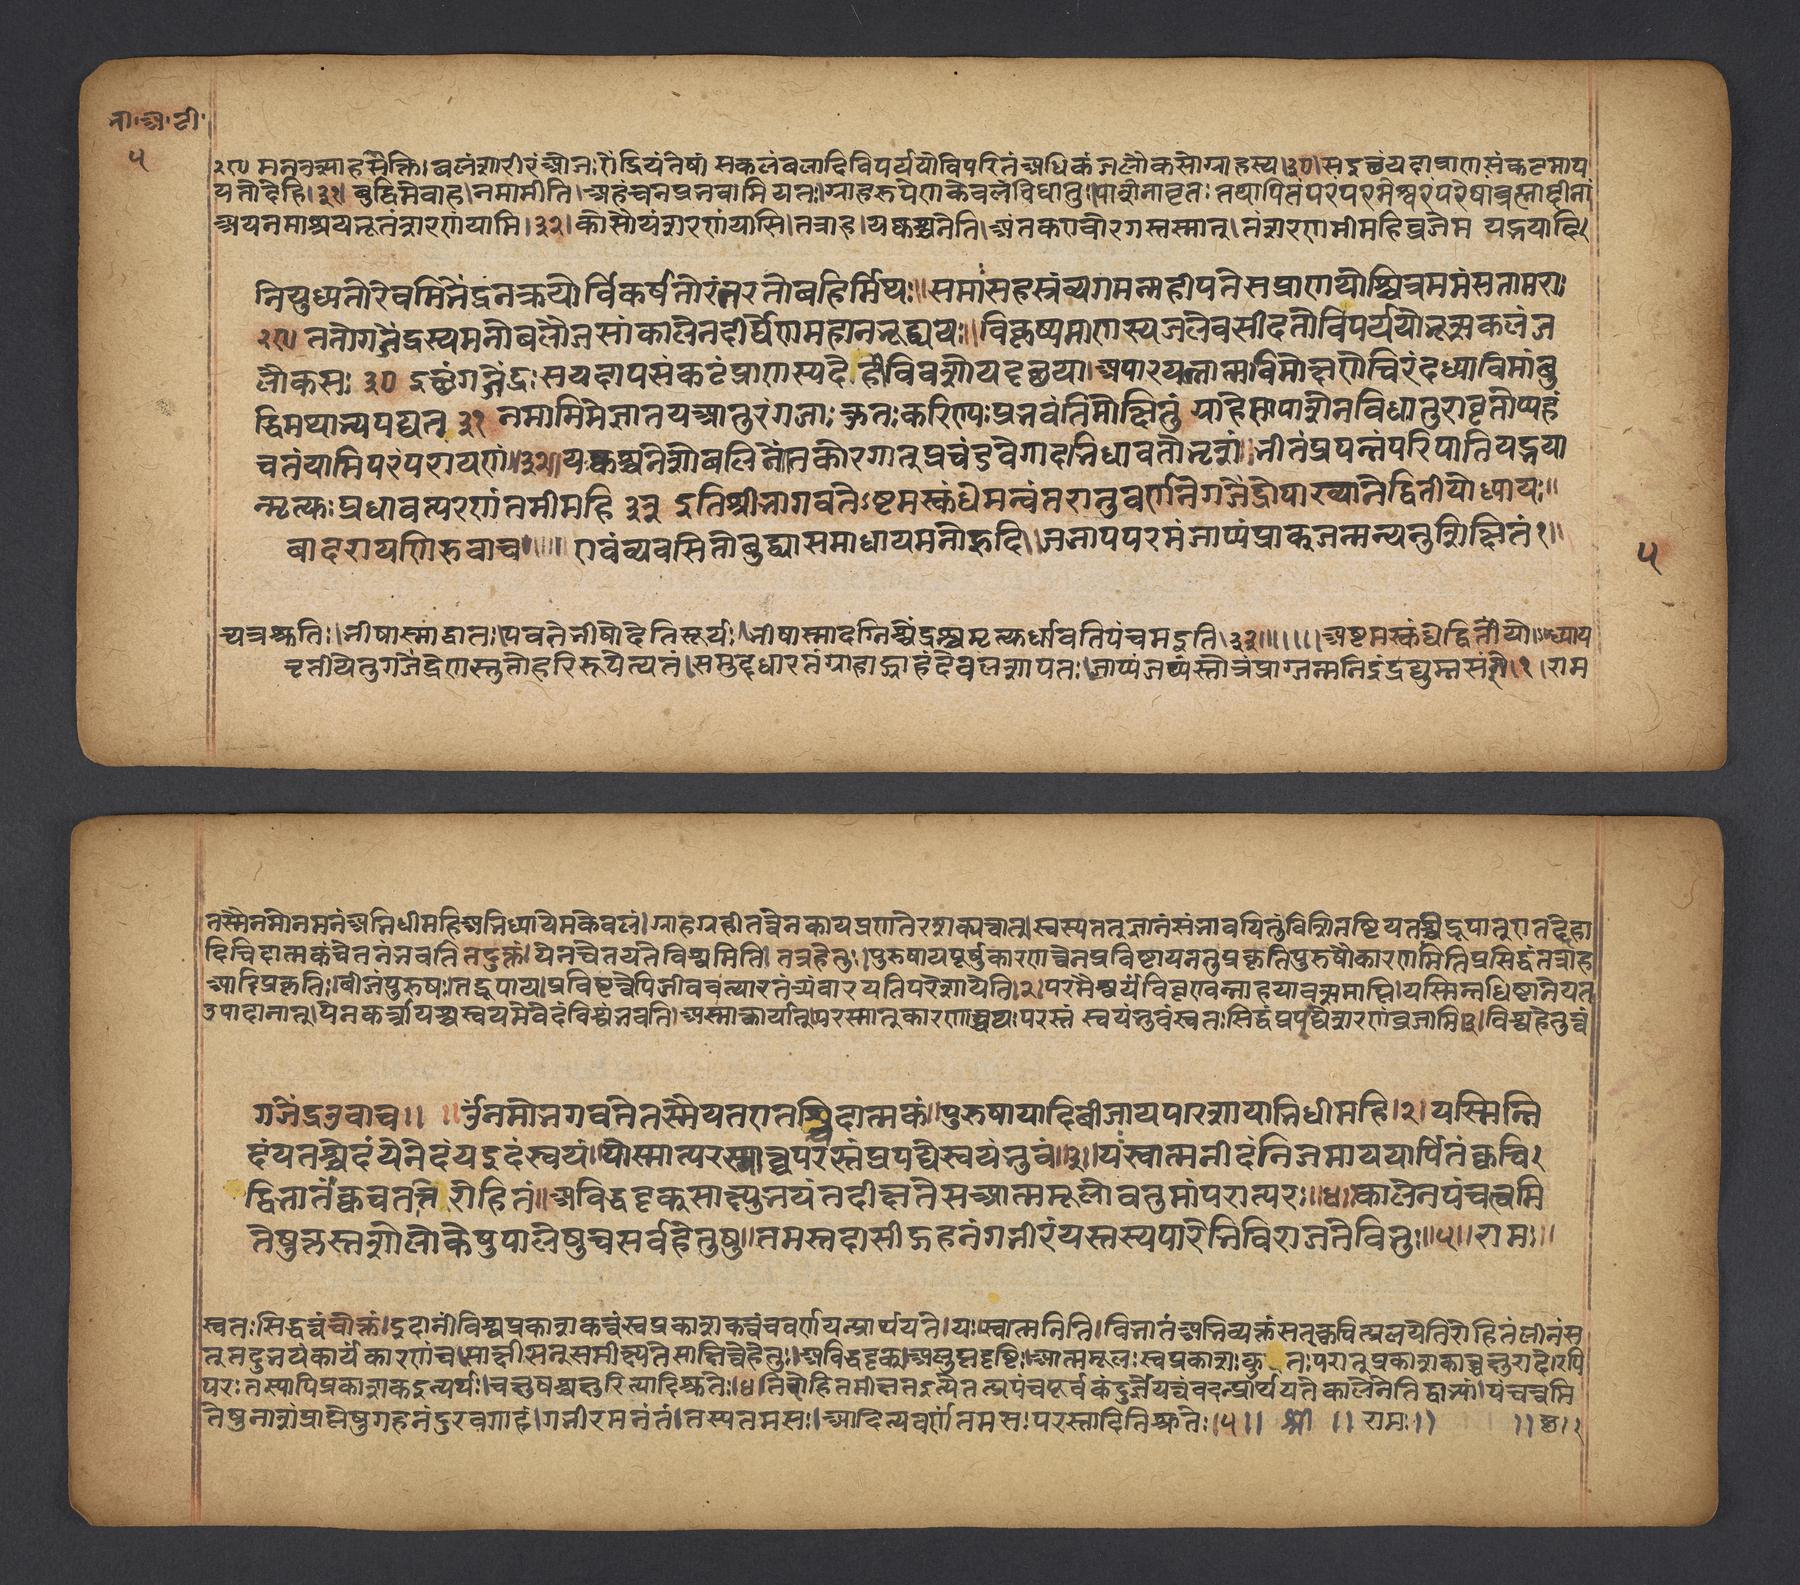 भा॰अ॰टी॰
५
२९॥ मनउत्साहशक्तिः।बलंशारीरंओजःऐंद्रियंतेषां सकलंबलादिविपर्ययोविपरितंअधिकं जलौकसोग्राहस्य।३०।सइत्थंयदाप्राणसंकटमाप
यतोदेहि।३१। बुद्धिमेवाह।नमामीति।अहंचनप्रभवामि यतः।ग्राहरूपेणकेवलंविधातुःपाशेनावृतः तथापितंपरंपरमेश्वरंपरेषांब्रह्मादीनां
अयनमाश्रयभूतंशरणंयामि।३२।कोसौयंशरणंयासि।तत्राह।यःकश्चनेति।अंतकएवोरगस्तस्मात्।तंशरणमीमहिव्रजेम यद्भयादि।
नियुध्यतोरेवमिभेंद्रनक्रयोर्विकर्षतोरंतरतोबहिर्मिथः॥समाःसहस्रंव्यगमन्महीपतेसप्राणयोश्चित्रममंसतामराः
२९॥ ततोगजेंद्रस्यमनोबलौजसांकालेनदीर्घेणमहानभूद्व्ययः॥विकृष्यमाणस्यजलेवसीदतोविपर्ययोभूत्सकलंज
लौकसः ३० इत्थंगजेंद्रःसयदापसंकटंप्राणस्यदेहीविवशोयदृच्छया।अपारयन्नात्मविमोक्षणेचिरंदध्याविमांबु
द्धिमथाभ्यपद्यत ३१ नमामिमेज्ञातयआतुरंगजाःकुतःकरिण्यःप्रभवंतिमोक्षितुं ग्राहेणपाशेनविधातुरावृतोप्यहं
चतंयामिपरंपरायणं॥३२॥यःकश्चनेशोबलिनोंतकोरगात्प्रचंडवेगादभिधावतोभृशं॥भीतंप्रपन्नंपरिपातियद्भया
न्मृत्युःप्रधावत्यरणंतमीमहि ३३ इतिश्रीभागवतेऽष्टमस्कंधेमन्वंतरानुवर्णनेगजेंद्रोपाख्यानेद्वितीयोध्यायः॥
बादरायणिरुवाच॥॥॥ एवंव्यवसितोबुद्ध्यासमाधायमनोहृदि॥जजापपरमंजाप्यंप्राक्जन्मन्यनुशिक्षितं१॥
५
च्यत्रश्रुतिः।भीषास्माद्वातःपवतेभीषोदेतिसूर्यः।भीषास्मादग्निश्चेंद्रश्चमृत्युर्धावतिपंचमइति।३३॥॥।।।अष्टमस्कंधेद्वितीयो।ऽध्याय
तृतीयेतुगजेंद्रेणस्तुतोहरिरुपेत्यतं।समुद्दधारतंग्राहाद्ग्राहंदेवलशापतः।जाप्यंजप्यंस्तोत्रंप्राग्जन्मनिइंद्रद्युम्नसंज्ञे।१।राम
तस्मैनमोनमनंअभिधीमहिअभिध्यायेमकेवलं।ग्राहगृहीतत्वेनकायप्रणतेरशक्यत्वात्।स्वस्यतत्ज्ञानंसंभावयितुंविशिनष्टियतश्चिद्रूपात्एतद्देहा
दिचिदात्मकंचेतनंभवति तदुक्तं।येनचेतयतेविश्वमिति। तत्रहेतुः।पुरुषायपूर्षुकारणत्वेनप्रविष्टायननुप्रकृतिपुरुषौकारणमितिप्रसिद्धंतत्राह
आदिप्रकृतिः।बीजंपुरुषः।तद्रूपाय।प्रविष्टत्वेपिजीववत्पारतंत्र्यंवारयतिपरेशायेति।२।परमैश्वर्यंविवृण्वन्नाहयावत्समाप्ति।यस्मिन्नधिष्ठानेयत
उपादानात्।येनकर्त्रायश्चस्वयमेवेदंविश्वंभवति।अस्मात्कार्यात्।परस्मात्कारणाच्चयः।परस्तं स्वयंभुवंस्वतःसिद्धंप्रपद्येशरणंव्रजामि।३।विश्वहेतुत्वं
गजेंद्रउवाच।। ॥ॐनमोभगवतेतस्मैयतएतच्चिदात्मकं॥पुरुषायादिबीजायपरेशायाभिधीमहि।२।यस्मिन्नि
दंयतश्चेदंयेनेदंयइदंस्वयं॥योस्मात्परस्माच्चपरस्तंप्रपद्येस्वयंभुवं॥३॥यःस्वात्मनीदंनिजमाययार्पितंक्वचि।
द्विभातंक्वचतत्तिरोहितं॥अविद्धदृक्साक्ष्युभयंतदीक्षतेसआत्ममूलोवतुमांपरात्परः॥४॥कालेनपंचत्वमि
तेषुकृत्स्नशोलोकेषुपालेषुचसर्वहेतुषु॥तमस्तदासीद्गहनंगभीरंयस्तस्यपारेभिविराजतेविभुः॥५॥रामः॥
स्वतःसिद्धत्वंचोक्तं।इदानींविश्वप्रकाशकत्वंस्वप्रकाशकत्वंचवर्णयन्प्रार्थयते।यःस्वात्मनिति।विभातंअभिव्यक्तंसत्क्वचित्प्रलयेतिरोहितंलीनंस
त्तदुभयंकार्यंकारणंच।साक्षीसन्समीक्ष्यतेसाक्षित्वेहेतुः।अविद्धदृक्।अलुप्तदृष्टिः।आत्ममूलःस्वप्रकाशःकुतःपरात्प्रकाशकाच्चक्षुरादेरपि
परःतस्यापिप्रकाशकइत्यर्थः।चक्षुषश्चक्षुरित्यादिश्रुतेः।४।तिरोहितमीक्षतइत्येतत्प्रपंचपूर्वकंदुर्ज्ञेयत्वंवदन्प्रार्थयतेकालेनेतिद्वाभ्यां।पंचत्वमि
तेषुनाशंप्राप्तेषुगहनंदुरवगाहं।गभीरमनंतं।तस्यतमसः।आदित्यवर्णंतमसःपरस्तादितिश्रुतेः।५।। श्री ।। रामः।। ।। छ।।